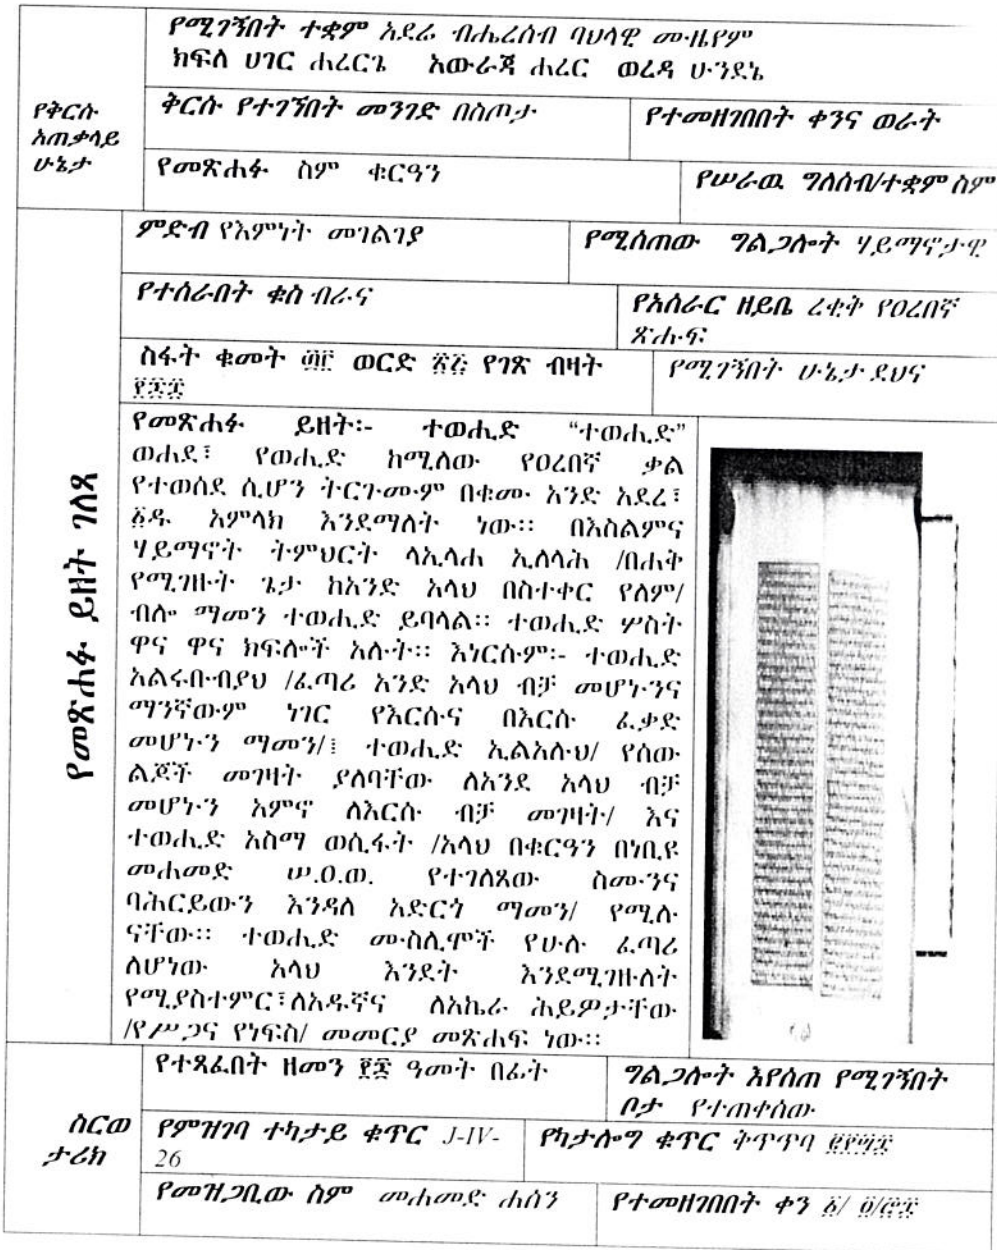 የሚገኝበት ተቋም አደሬ ብሔረሰብ ባህላዊ ሙዚየም
ክፍለ ሀገር ሐረርጌ አውራጃ ሐረር ወረዳ ሁንደኔ
የቅርሱ
አጠቃላይ
ሁኔታ
ቅርሱ የተገኘበት መንገድ በስጦታ
የተመዘገበበት ቀንና ወራት
የመጽሐፉ ስም ቁርዓን
የሠራዉ ግለሰብ/ተቋም ስም
የመጽሐፉ ይዘት ገለጻ
ምድብ የእምነት መገልገያ
የሚሰጠው ግልጋሎት ሃይማኖታዊ
የተሰራበት ቁስ ብራና
የአሰራር ዘይቤ ረቂቅ የዐረበኛ
ጽሑፍ
ስፋት ቁመት ወርድ የገጽ ብዛት
የሚገኝበት ሁኔታ ደህና
የመጽሐፉ ይዘት፡- ተወሒድ “ተወሒድ”
ወሐደ፣ የወሒድ ከሚለው የዐረበኛ ቃል
የተወሰደ ሲሆን ትርጉሙም በቁሙ አንድ አደረ፣
፩ዱ አምላክ እንደማለት ነው። በእስልምና
ሃይማኖት ትምህርት ላኢላሐ ኢለላሕ /በሐቅ
የሚገዙት ጌታ ከአንድ አላህ በስተቀር የለም/
ብሎ ማመን ተወሒድ ይባላል። ተወሒድ ሦስት
ዋና ዋና ክፍሎች አሉት። እነርሱም፡- ተወሒድ
አልሩቡብያህ /ፈጣሪ አንድ አላህ ብቻ መሆኑንና
ማንኛውም ነገር የእርሱና በእርሱ ፈቃድ
መሆኑን ማመን/፤ ተወሒድ ኢልአሉህ/ የሰው
ልጆች መገዛት ያለባቸው ለአንደ አላህ ብቻ
መሆኑን አምኖ ለእርሱ ብቻ መገዛት/ እና
ተወሒድ አስማ ወሲፋት /አላህ በቁርዓን በነቢዩ
መሐመድ ሠ.ዐ.ወ. የተገለጸው ስሙንና
ባሕርይውን እንዳለ አድርጎ ማመን/ የሚሉ
ናቸው። ተወሒድ ሙስሊሞች የሁሉ ፈጣሪ
ለሆነው አላህ እንደት እንደሚገዙለት
የሚያስተምር፣ለአዱኛና ለአኬራ ሕይዎታቸው
/የሥጋና የነፍስ/ መመርያ መጽሐፍ ነው።
ስርወ
ታሪክ
የተጻፈበት ዘመን ዓመት በፊት
ግልጋሎት እየሰጠ የሚገኝበት
ቦታ የተጠቀሰው
የምዝገባ ተከታይ ቁጥር J-IV-
26
የካታሎግ ቁጥር ቅጥጥባ
የመዝጋቢው ስም መሐመድ ሐሰን
የተመዘገበበት ቀን